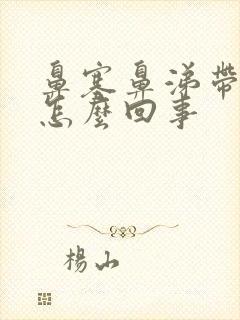 鼻塞鼻涕帶
怎麼回事
楊山